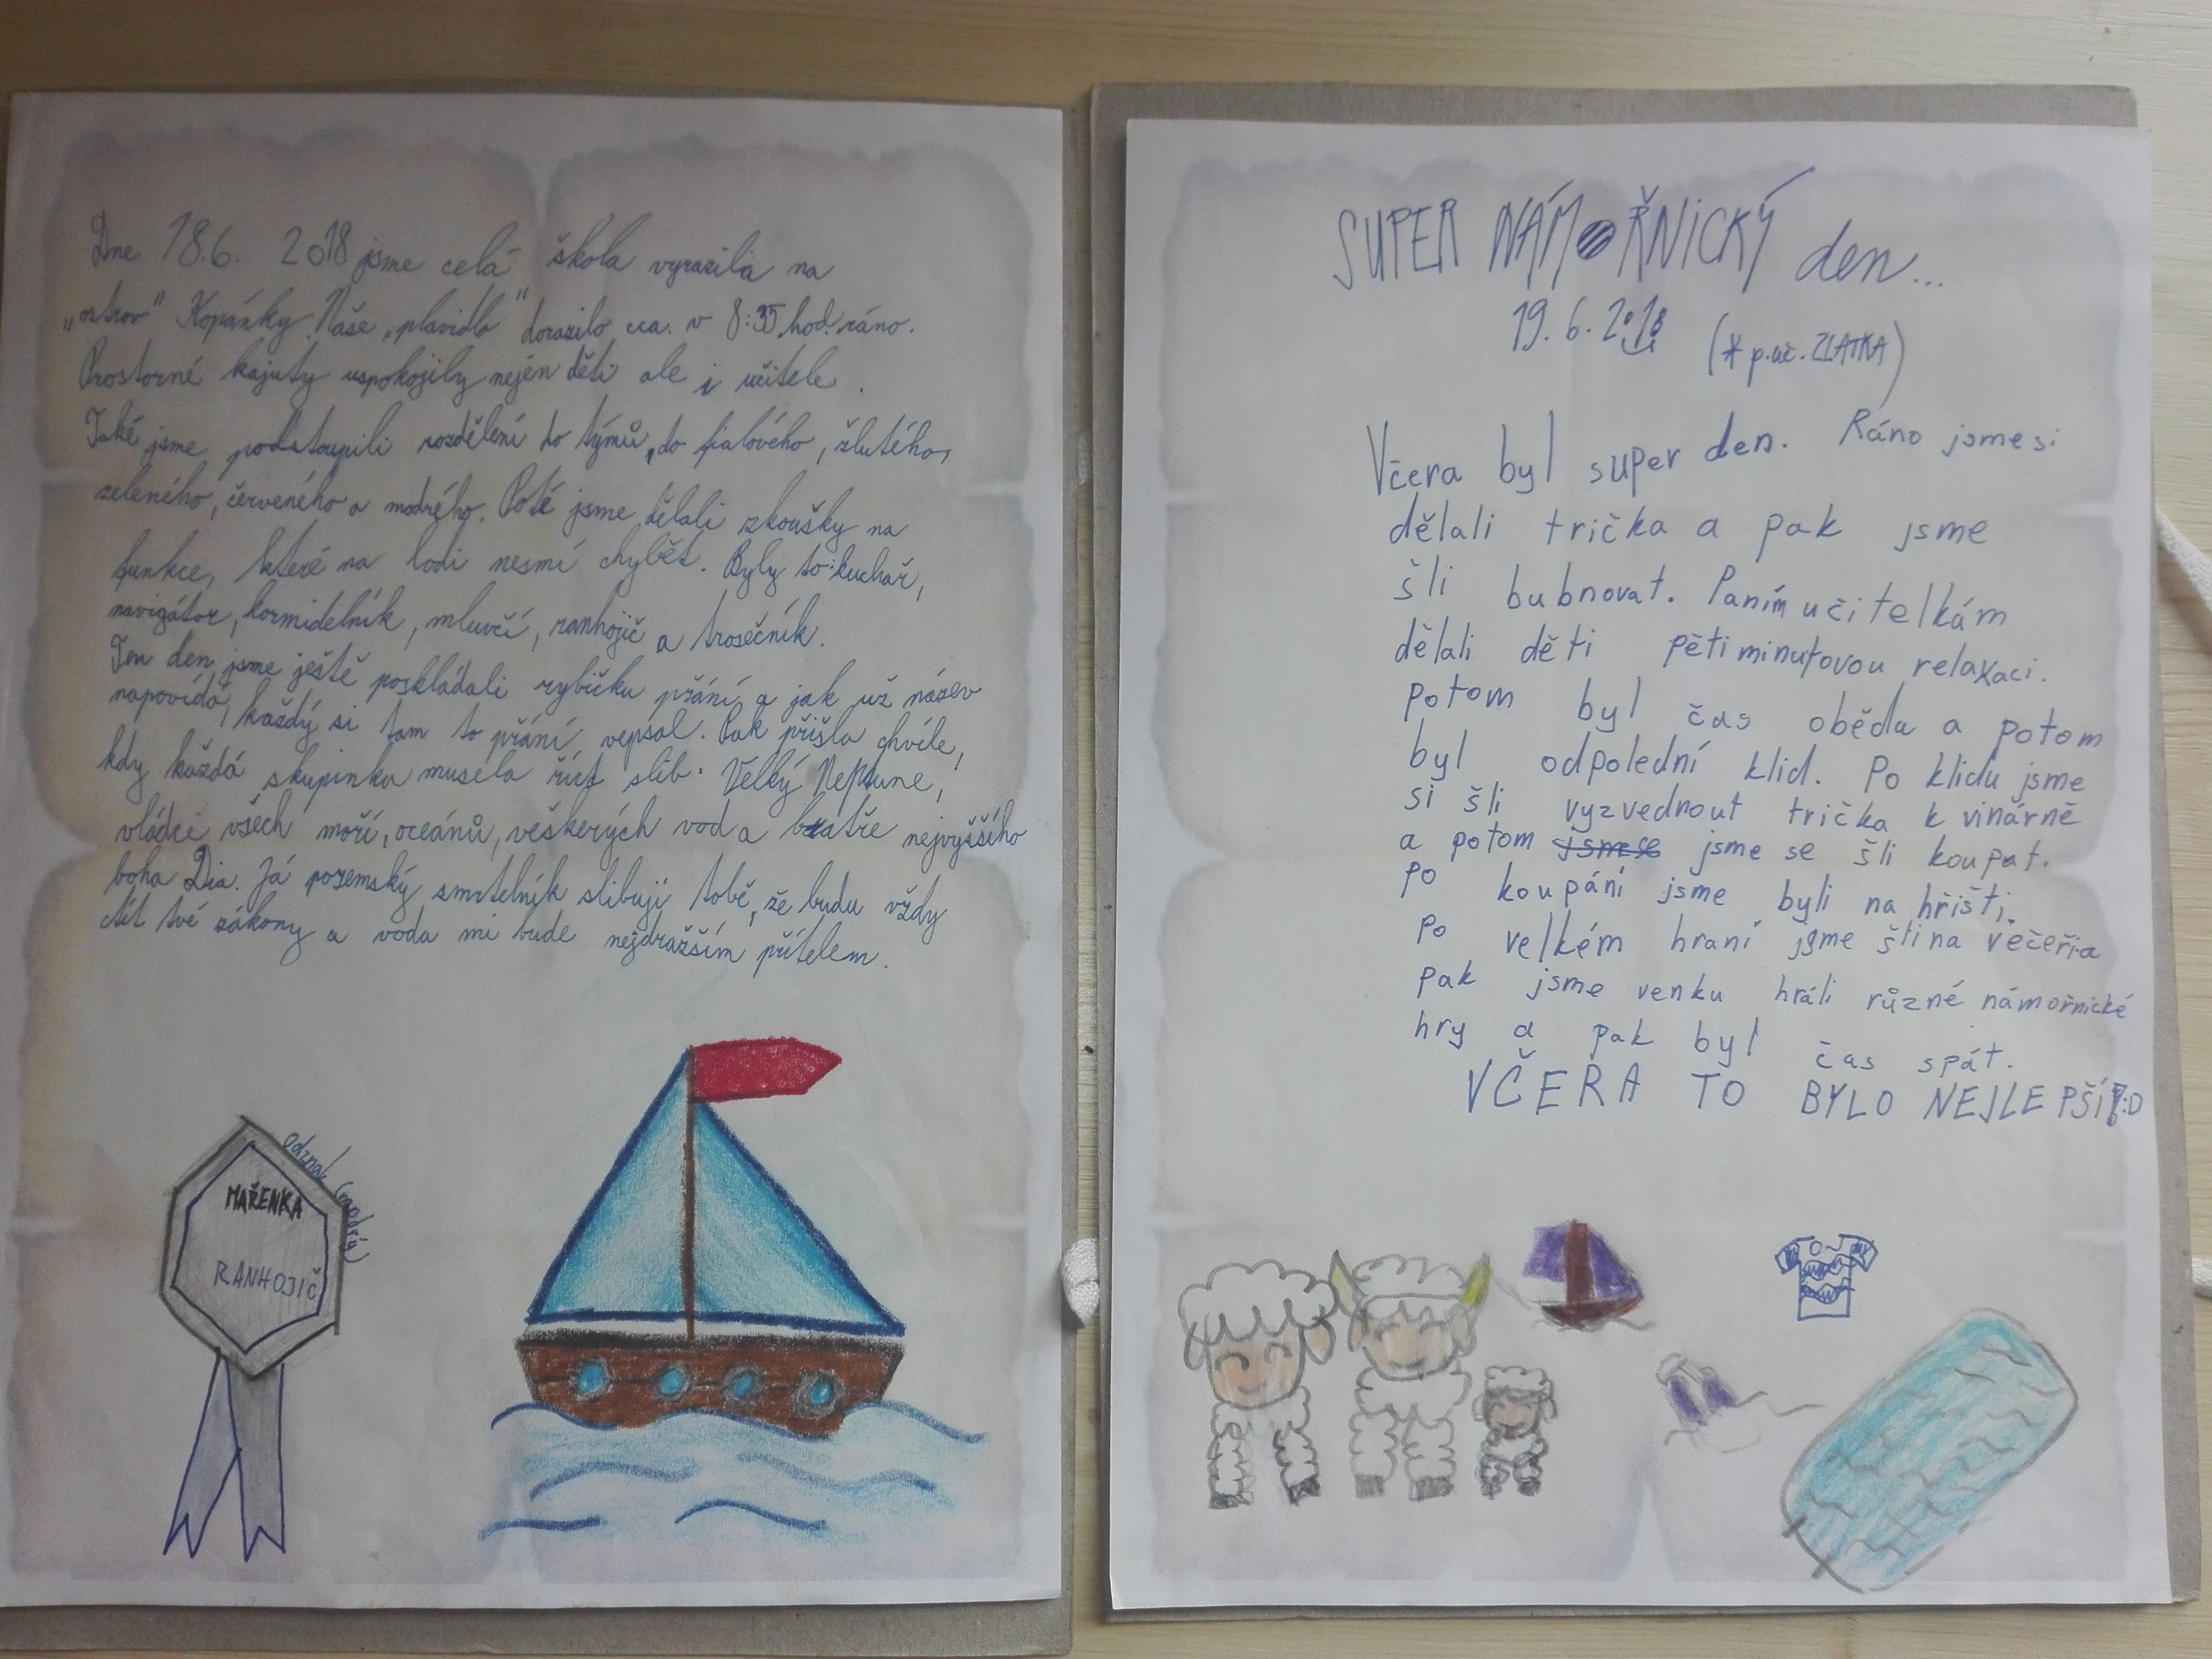 Dne 18.6. 2018 jsme celá škola vyrazila na
„ostrov" Kopánky. Naše „plavidlo" dorazilo cca. v 8:35 hod. ráno.
Prostorné kajuty uspokojily nejen děti ale i učitele.
Také jsme podstoupili rozdělení do týmů, do fialového, žlutého,
zeleného, červeného a modrého. Poté jsme dělali zkoušky na
funkce, které na lodi nesmí chybět. Byly to: kuchař,
navigátor, kormidelník, mluvčí, ranhojič a trosečník.
Ten den jsme ještě poskládali rybičku přání a jak už název
napovídá, každý si tam to přání vepsal. Pak přišla chvíle,
kdy každá skupinka musela říct slib. Velký Neptune,
vládci všech moří, oceánů, veškerých vod a bratře nejvyššího
boha Dia. Já pozemský smrtelník slibuji tobě, že budu vždy
ctít tvé zákony a voda mi bude nejdražším přítelem.
odznak (modrý)
MAŘENKA
RANHOJIČ
SUPER NÁMOŘNICKÝ den...
19. 6. 2018
(* p.uč. ZLATKA)
Včera byl super den. Ráno jsme si
dělali trička a pak jsme
šli bubnovat. Paním učitelkám
dělali děti pětiminutovou relaxaci.
potom byl čas obědu a potom
byl odpolední klid. Po klidu jsme
si šli vyzvednout trička k vinárně
a potom jsme se jsme se šli koupat.
Po koupání jsme byli na hřišti.
Po velkém hraní jsme šli na večeři a
pak jsme venku hráli různé námořnické
hry a pak byl čas spát.
VČERA TO BYLO NEJLEPŠÍ!:D